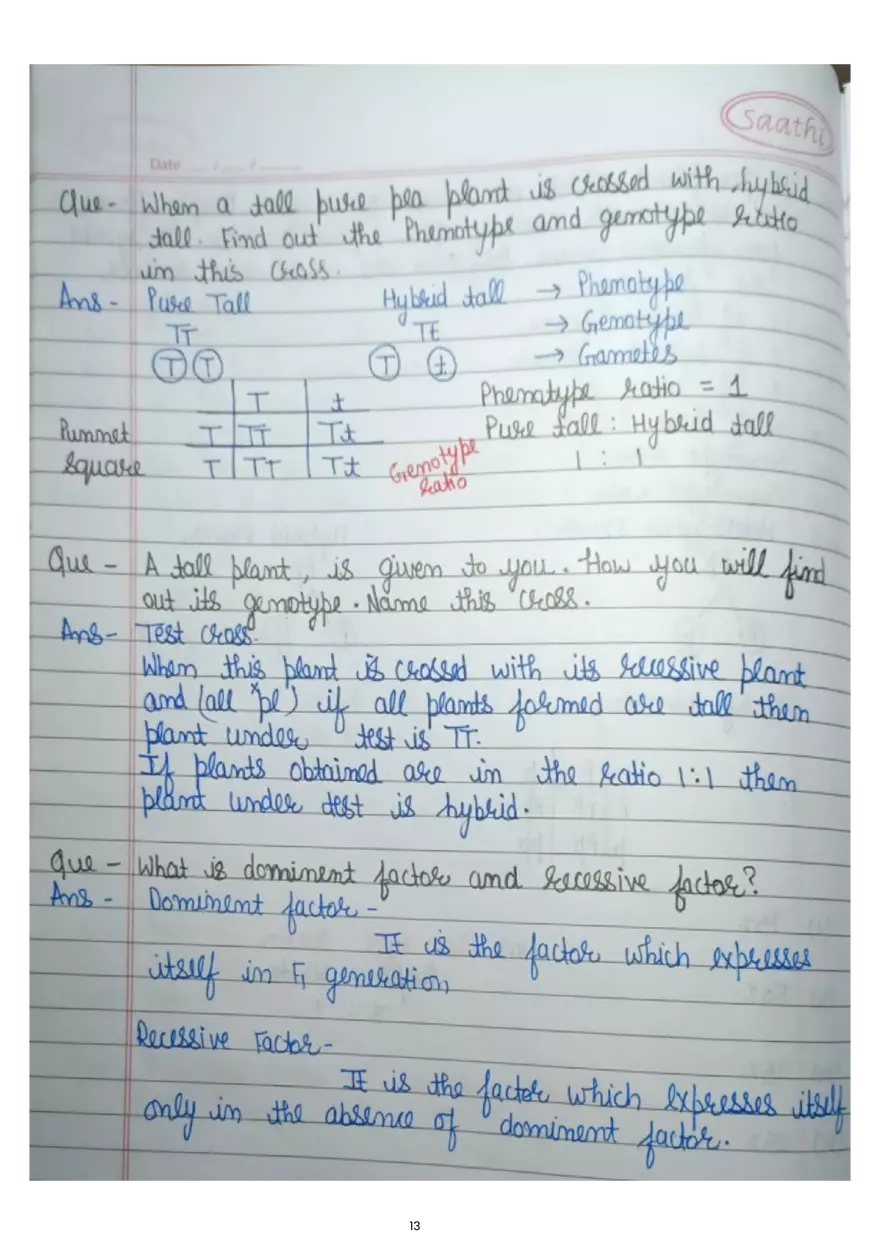 Saathi
Date ___/___/___
Que - When a tall pure pea plant is crossed with hybrid
tall. Find out the Phenotype and genotype ratio
in this cross.
Ans - Pure Tall Hybrid tall → Phenotype
TT Tt → Genotype
T T T t → Gametes
T t Phenotype ratio = 1
Punnet T TT Tt Pure tall : Hybrid tall
Square T TT Tt Genotype ratio 1 : 1
Que - A tall plant, is given to you. How you will find
out its genotype. Name this cross.
Ans - Test cross.
When this plant is crossed with its recessive plant
and (all pl) if all plants formed are tall then
plant under test is TT.
If plants obtained are in the ratio 1:1 then
plant under test is hybrid.
Que - What is dominent factor and recessive factor?
Ans - Dominent factor -
It is the factor which expresses
itself in F1 generation
Recessive Factor -
It is the factor which expresses itself
only in the absence of dominent factor.
13